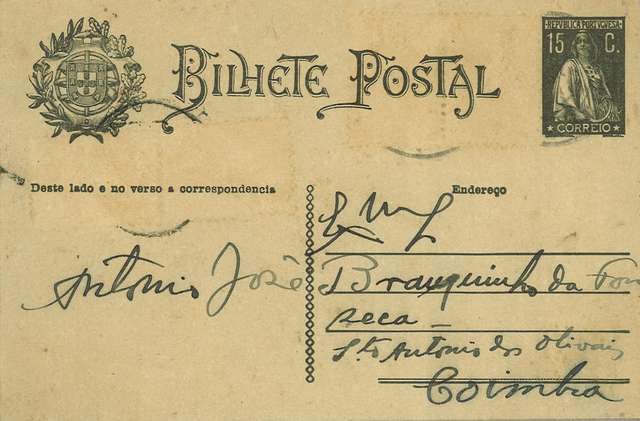 BILHETE POSTAL
REPUBLICA PORTUGUESA
15 C.
CORREIO
Deste lado e no verso a correspondencia
Endereço
António José
Branquinho da Fon
seca
Sto António dos Olivais
Coimbra